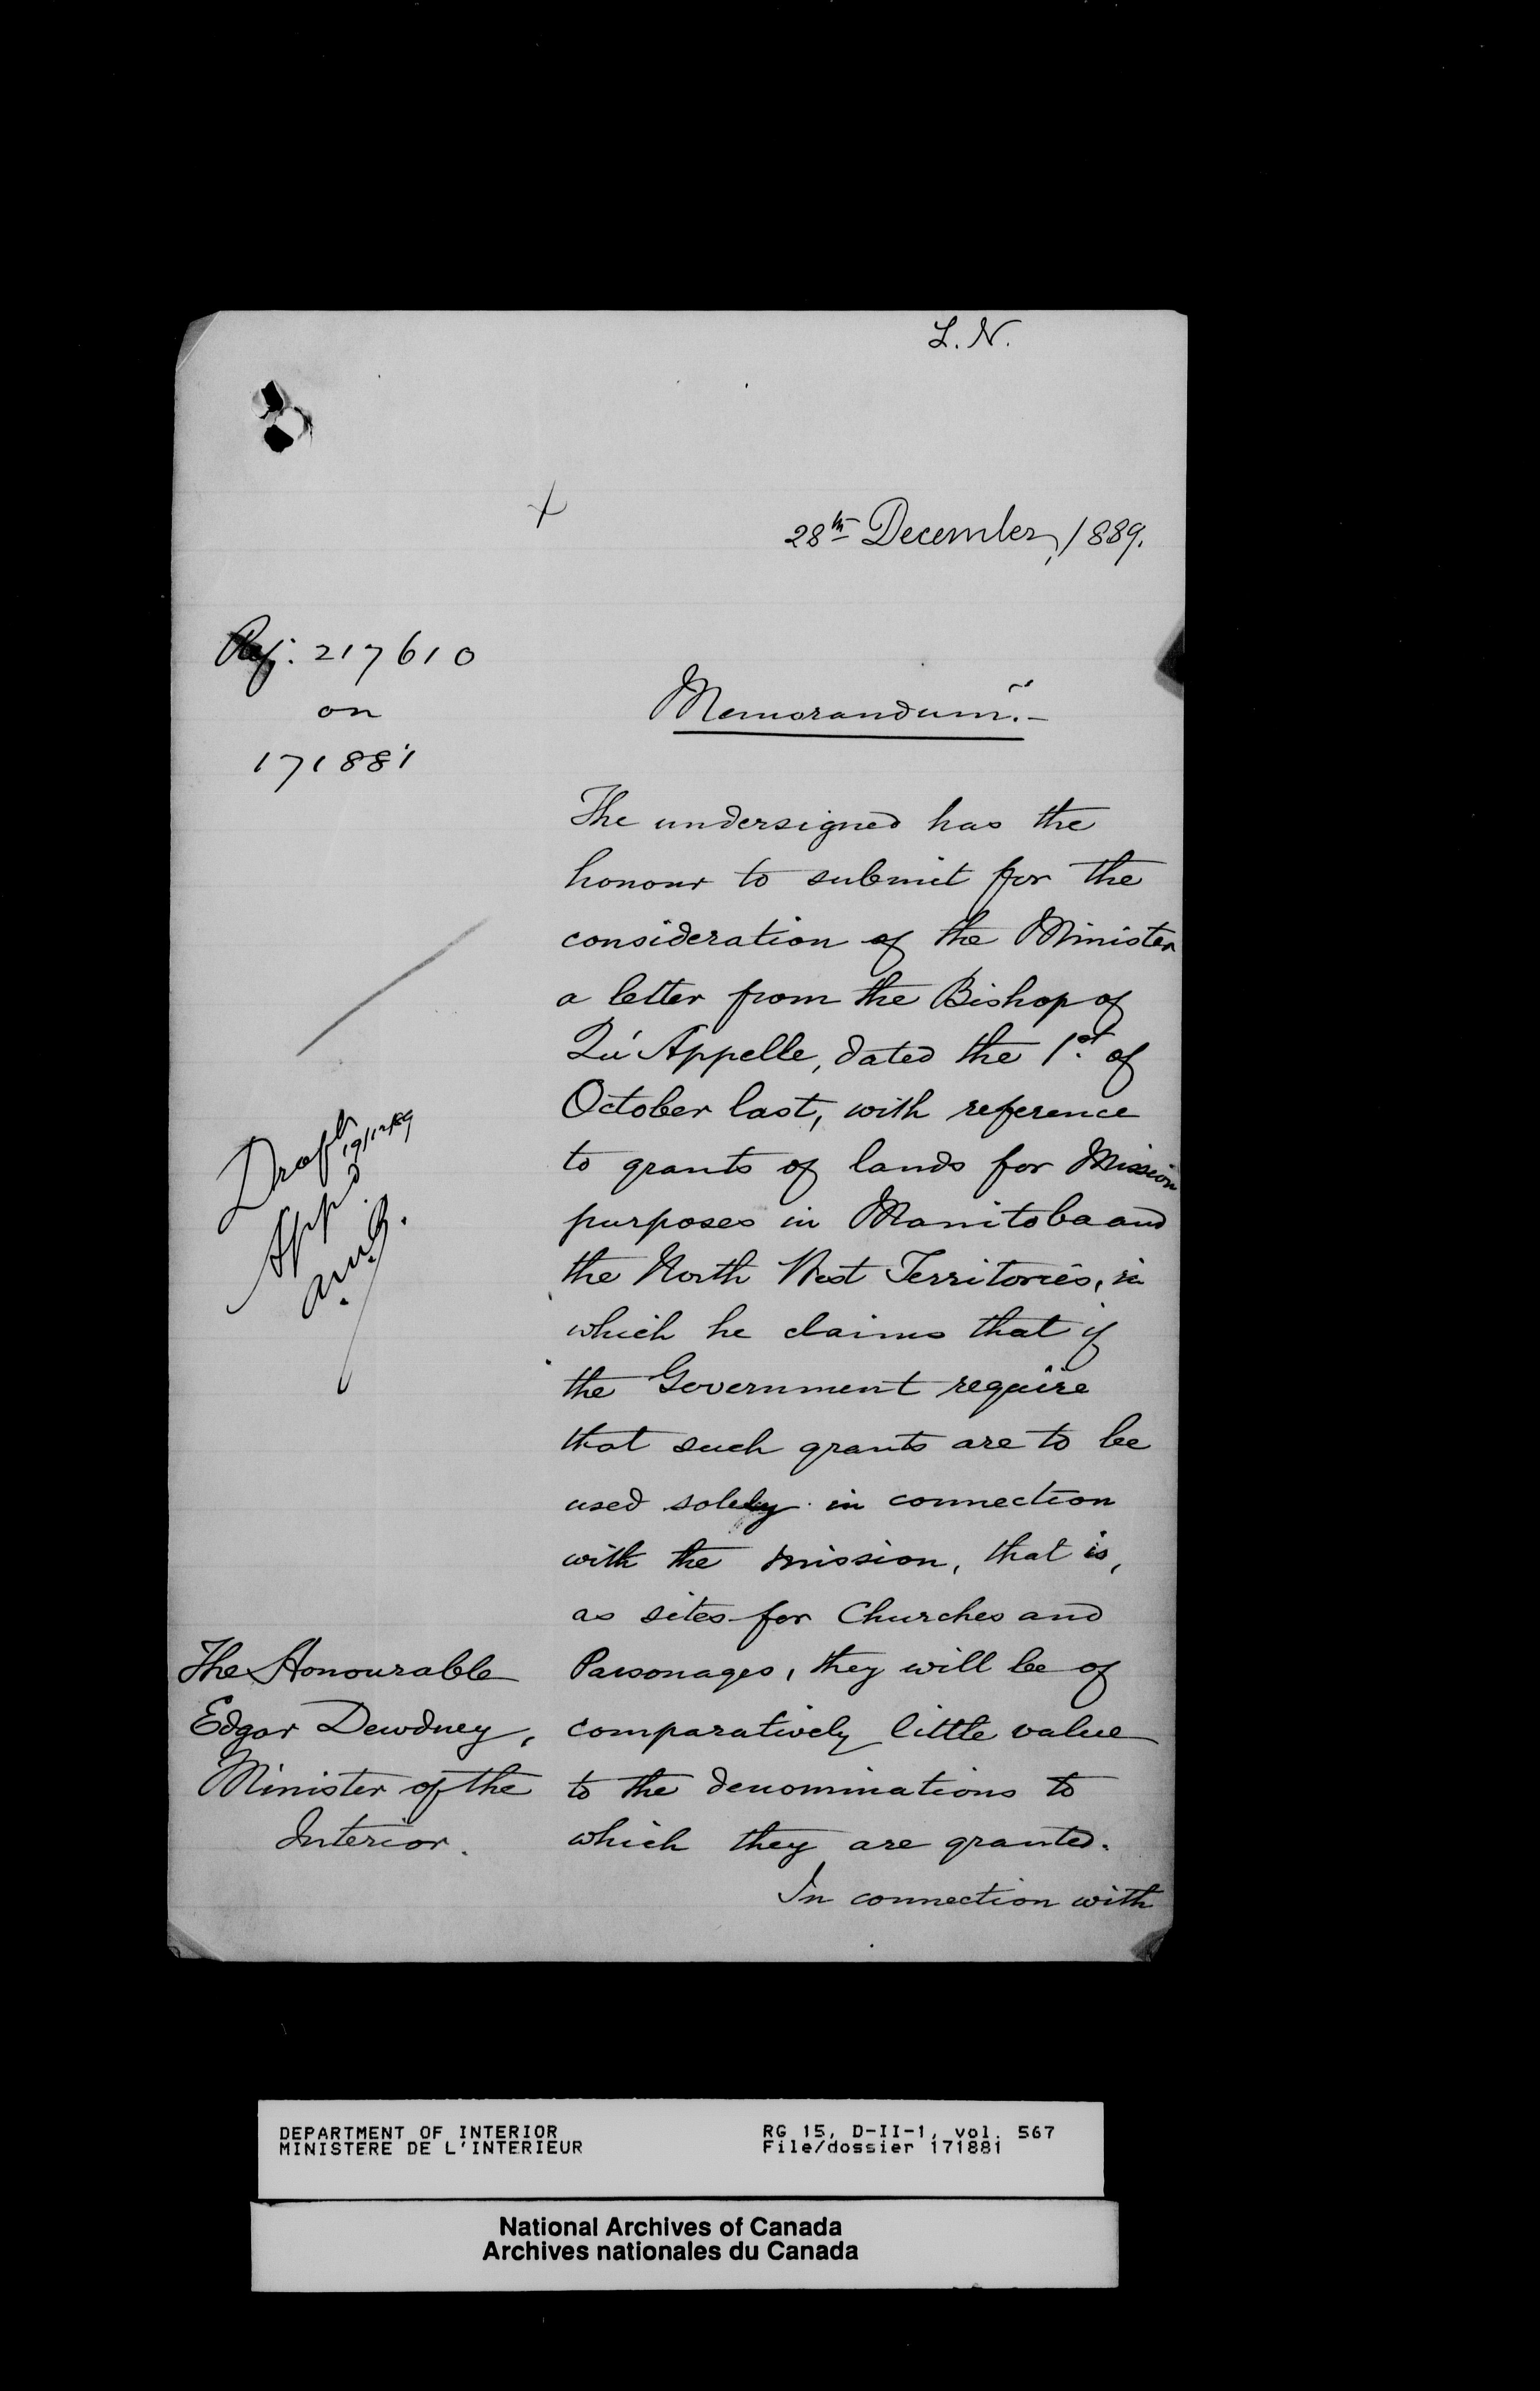 L. N.
28th December, 1889.
Ref. 217610
on
171881
Memorandum.-
The undersigned has the
honour to submit for the
consideration of the Minister
a letter from the Bishop of
Qu'Appelle, dated the 1st. of
October last, with reference
to grants of lands for Mission
purposes in Manitoba and
the North West Territories, in
which he claims that if
the Government require
that such grants are to be
used solely in connection
with the mission, that is,
as sites for Churches and
Parsonages, they will be of
comparatively little value
to the denominations to
which they are granted.
In connection with
Draft
19/12/89
Appd
The Honourable
Edgar Dewdney,
Minister of the
Interior.
DEPARTMENT OF INTERIOR
MINISTERE DE L'INTERIEUR
RG 15, D-II-1, vol. 567
File/dossier 171881
National Archives of Canada
Archives nationales du Canada